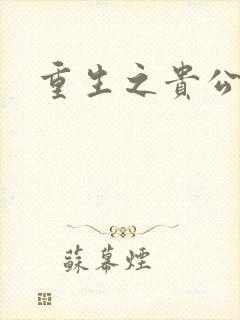 重生之貴公
蘇幕煙